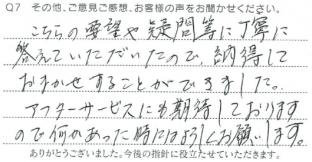 Q7 その他、ご意見ご感想、お客様の声をお聞かせください。
こちらの要望や疑問等に丁寧に
答えていただいたので、納得して
おまかせすることができました。
アフターサービスにも期待しております
ので何かあった時にはよろしくお願いします。
ありがとうございました。今後の指針に役立たせていただきます。